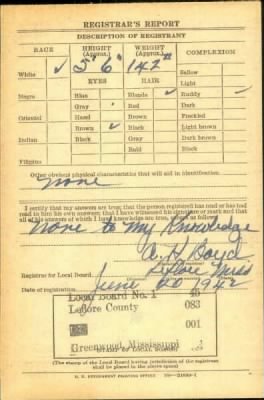 REGISTRAR'S REPORT
DESCRIPTION OF REGISTRANT
RACE HEIGHT (Approx.) WEIGHT (Approx.) COMPLEXION
White ✓ 5' 6" 142 Sallow
EYES HAIR Light
Negro Blue Blonde ✓ Ruddy ✓
Gray Red Dark
Oriental Hazel Brown Freckled
Brown ✓ Black Light brown
Indian Black Gray Dark brown
Bald Black
Filipino
Other obvious physical characteristics that will aid in identification
None
I certify that my answers are true; that the person registered has read or has had
read to him his own answers; that I have witnessed his signature or mark and that
all of his answers of which I have knowledge are true, except as follows:
None to my Knowledge
A. H. Boyd
Registrar for Local Board Leflore Miss
Date of registration June 20 1942
Local Board No. 1 45
Leflore County 083
001
Greenwood, Mississippi
(STAMP OF LOCAL BOARD)
(The stamp of the Local Board having jurisdiction of the registrant
shall be placed in the above space.)
U. S. GOVERNMENT PRINTING OFFICE